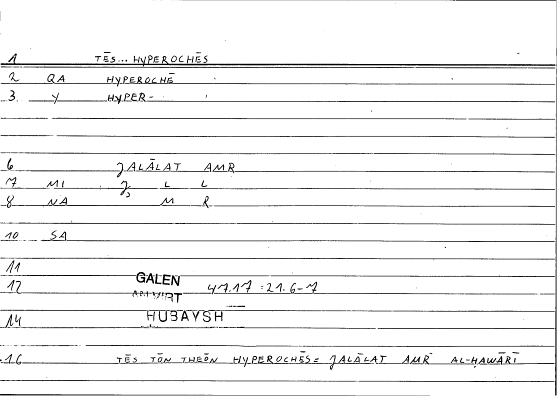 1 TĒS... HYPEROCHĒS
2 QA HYPEROCHĒ
3. Y HYPER-
6 JALĀLAT AMR
7 MI J L L
8 NA M R
10 SA
11
12 GALEN 47.17 : 21.6-7
AN VIRT
14 HUBAYSH
16 TĒS TŌN THEŌN HYPEROCHĒS = JALĀLAT AMR AL-ḤAWĀRĪ